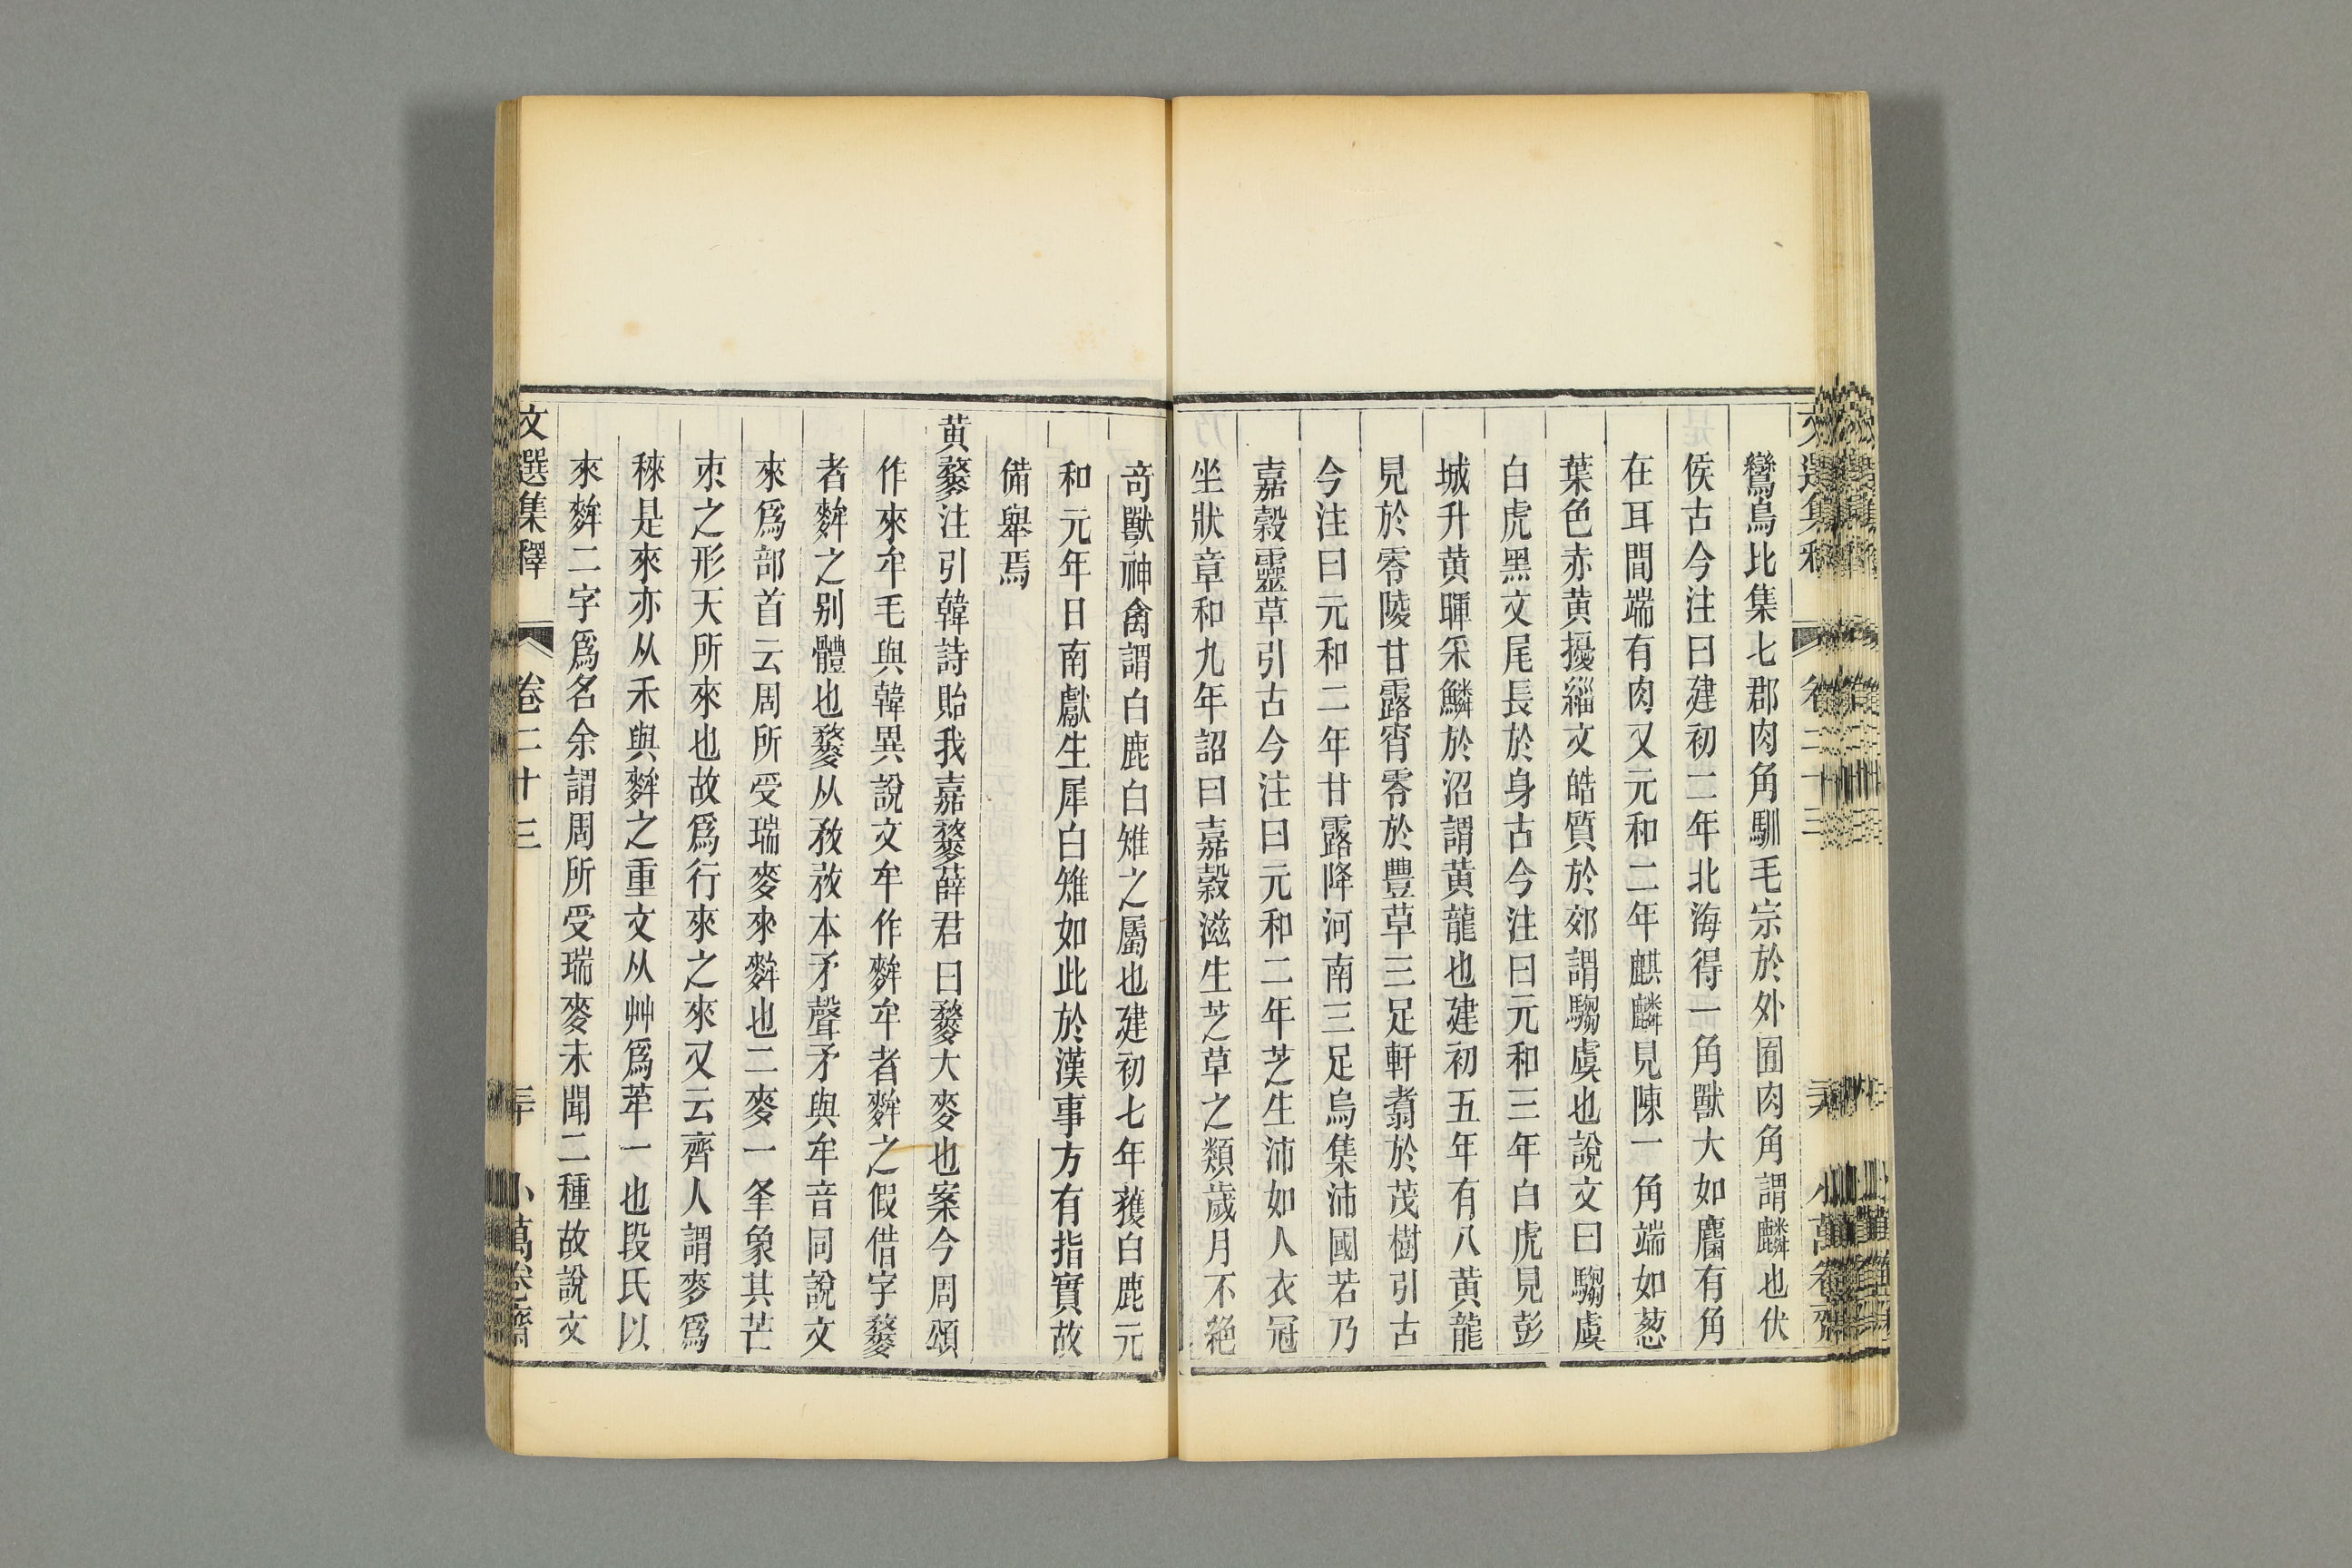 鸞鳥比集七郡肉角馴毛宗於外囿肉角謂麟也伏
侯古今注曰建初二年北海得一角獸大如麕有角
在耳間端有肉又元和二年麒麟見陳一角端如葱
葉色赤黄擾緇文皓質於郊謂騶虞也說文曰騶虞
白虎黑文尾長於身古今注曰元和三年白虎見彭
城升黄暉采鱗於沼謂黄龍也建初五年有八黄龍
見於零陵甘露宵零於豐草三足軒翥於茂樹引古
今注曰元和二年甘露降河南三足烏集沛國若乃
嘉穀靈草引古今注曰元和二年芝生沛如人衣冠
坐狀章和九年詔曰嘉穀滋生芝草之類歲月不絶
竒獸神禽謂白鹿白雉之屬也建初七年獲白鹿元
和元年日南獻生犀白雉如此於漢事方有指實故
備舉焉
黄䅘注引韓詩貽我嘉䅘薛君曰䅘大麥也案今周頌
作來牟毛與韓異說文牟作麰牟者麰之假借字䅘
者麰之别體也䅘从敄敄本矛聲矛與牟音同說文
來爲部首云周所受瑞麥來麰也二麥一夆象其芒
朿之形天所來也故爲行來之來又云齊人謂麥爲
䅘是來亦从禾與麰之重文从艸爲䓈一也段氏以
來麰二字爲名余謂周所受瑞麥未聞二種故說文
文選集釋 卷二十三 三十 小萬卷齋